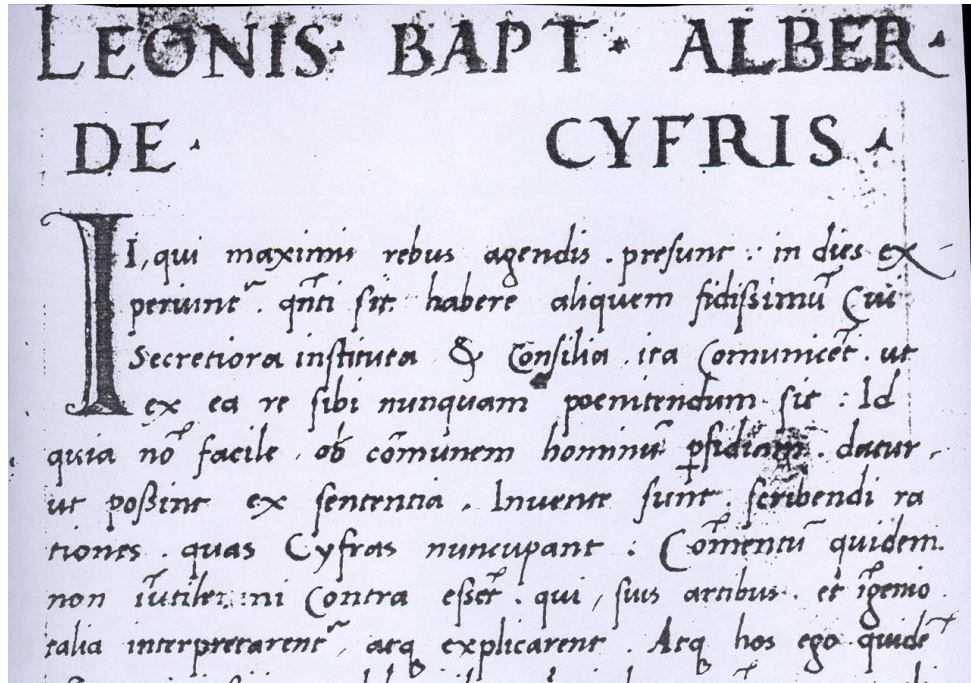 LEONIS· BAPT· ALBER·
DE· CYFRIS·
II, qui maximis rebus agendis . presunt : in dies ex-
periunt᷑ . qñti sit habere aliquem fidissimū Cui
Secretiora instituta & Consilia . ita Comunicēt . ut
ex ea re sibi nunquam poenitendum sit : Id
quia nō facile . ob cōmunem hominū ꝑfidiam . datur,
ut poßint ex sententia . Inuente sunt . scribendi ra
tiones . quas Cyfras nuncupant : Cōmentū quidem.
non īutile: ni Contra eßēt . qui, suis artibus . et īgenio .
talia interpretarent᷑, atq explicarent . Atq hos ego quidē